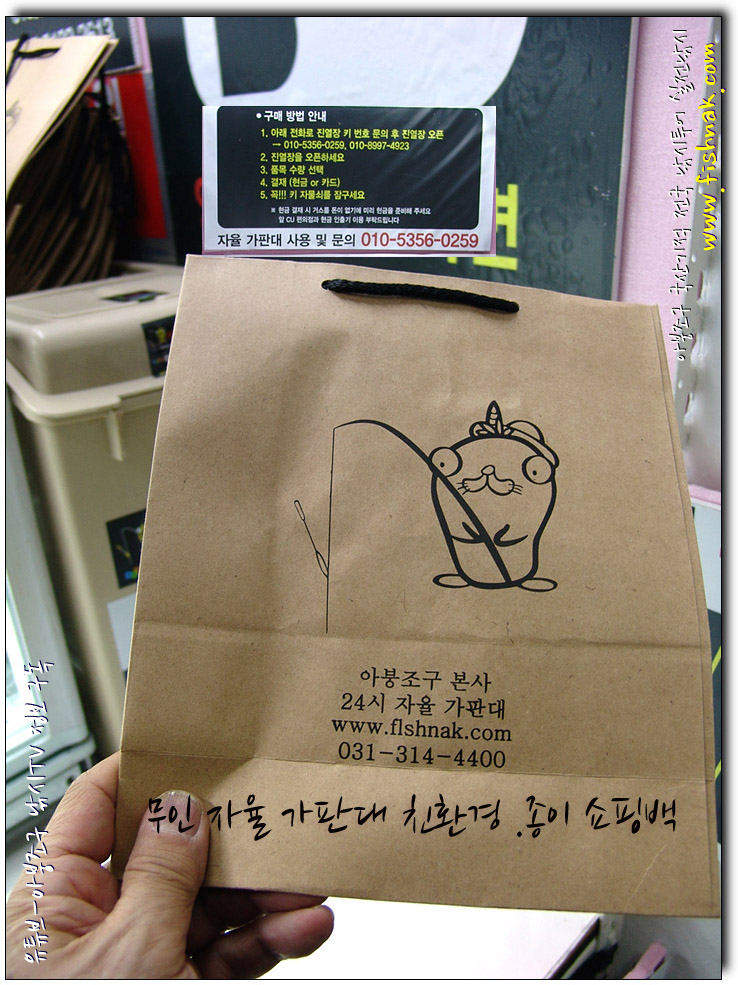 • 구매 방법 안내
1. 아래 전화로 진열장 키 번호 문의 후 진열장 오픈
→ 010-5356-0259, 010-8997-4923
2. 진열장을 오픈하세요
3. 품목 수량 선택
4. 결재 (현금 or 카드)
5. 꼭!!! 키 자물쇠를 잠구세요
※ 현금 결재 시 거스름 돈이 없기에 미리 현금을 준비해 주세요
앞 CU 편의점과 현금 인출기 이용 부탁드립니다
자율 가판대 사용 및 문의 010-5356-0259
아붕조구 본사
24시 자율 가판대
www.flshnak.com
031-314-4400
무인 자율 가판대 친환경 .종이 쇼핑백
유튜브-아붕조구 낚시TV 정보 구독
www.fishnak.com